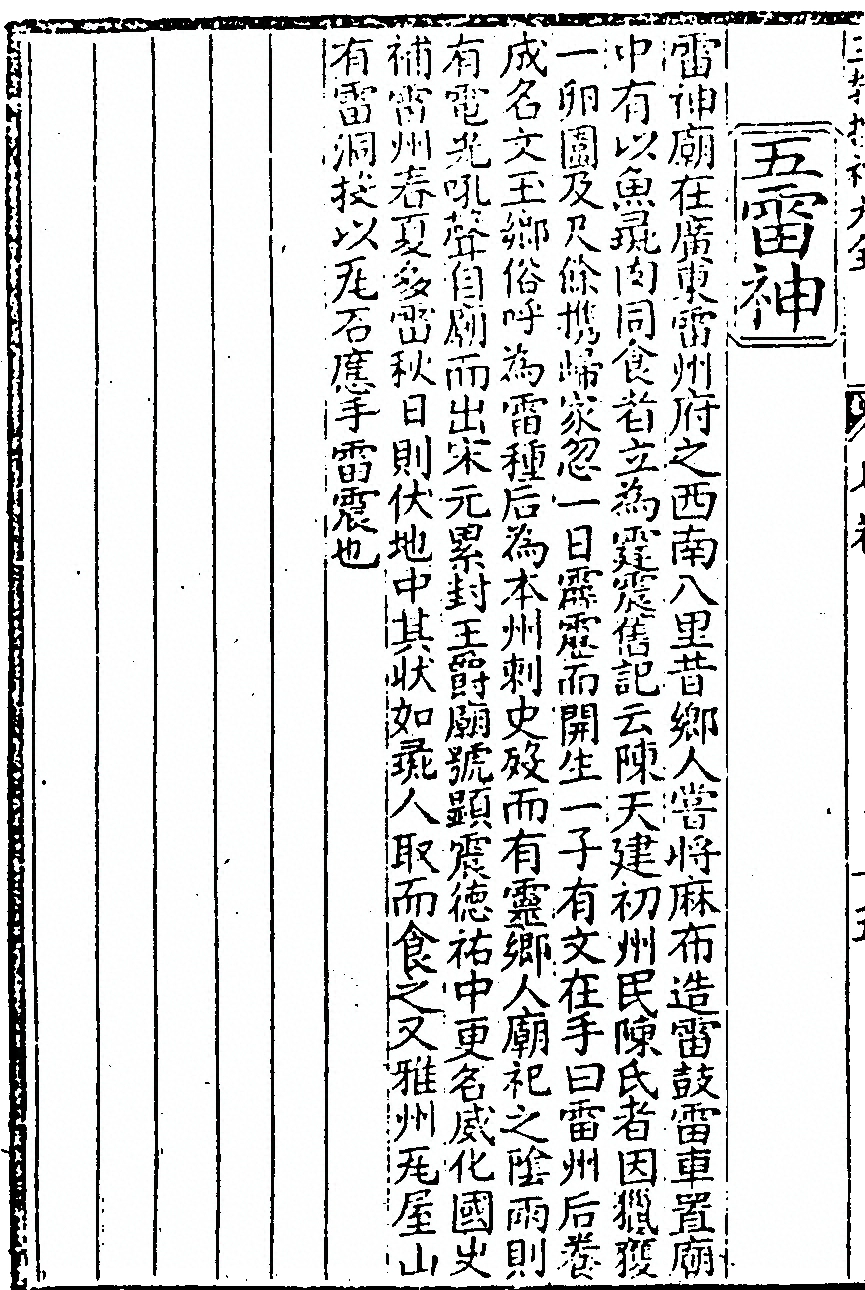 五雷神
雷神廟在廣東雷州府之西南八里昔鄉人嘗將麻布造雷鼓雷車置廟
中有以魚彘肉同食者立為霆震舊記云陳天建初州民陳氏者因獵獲
一卵圍及尺餘携歸家忽一日霹靂而開生一子有文在手曰雷州后養
成名文玉鄉俗呼為雷種后為本州刺史歿而有靈鄉人廟祀之陰雨則
有電光吼聲自廟而出宋元累封王爵廟號顯震德祐中更名威化國史
補雷州春夏多雷秋日則伏地中其狀如彘人取而食之又雅州瓦屋山
有雷洞投以瓦石應手雷震也